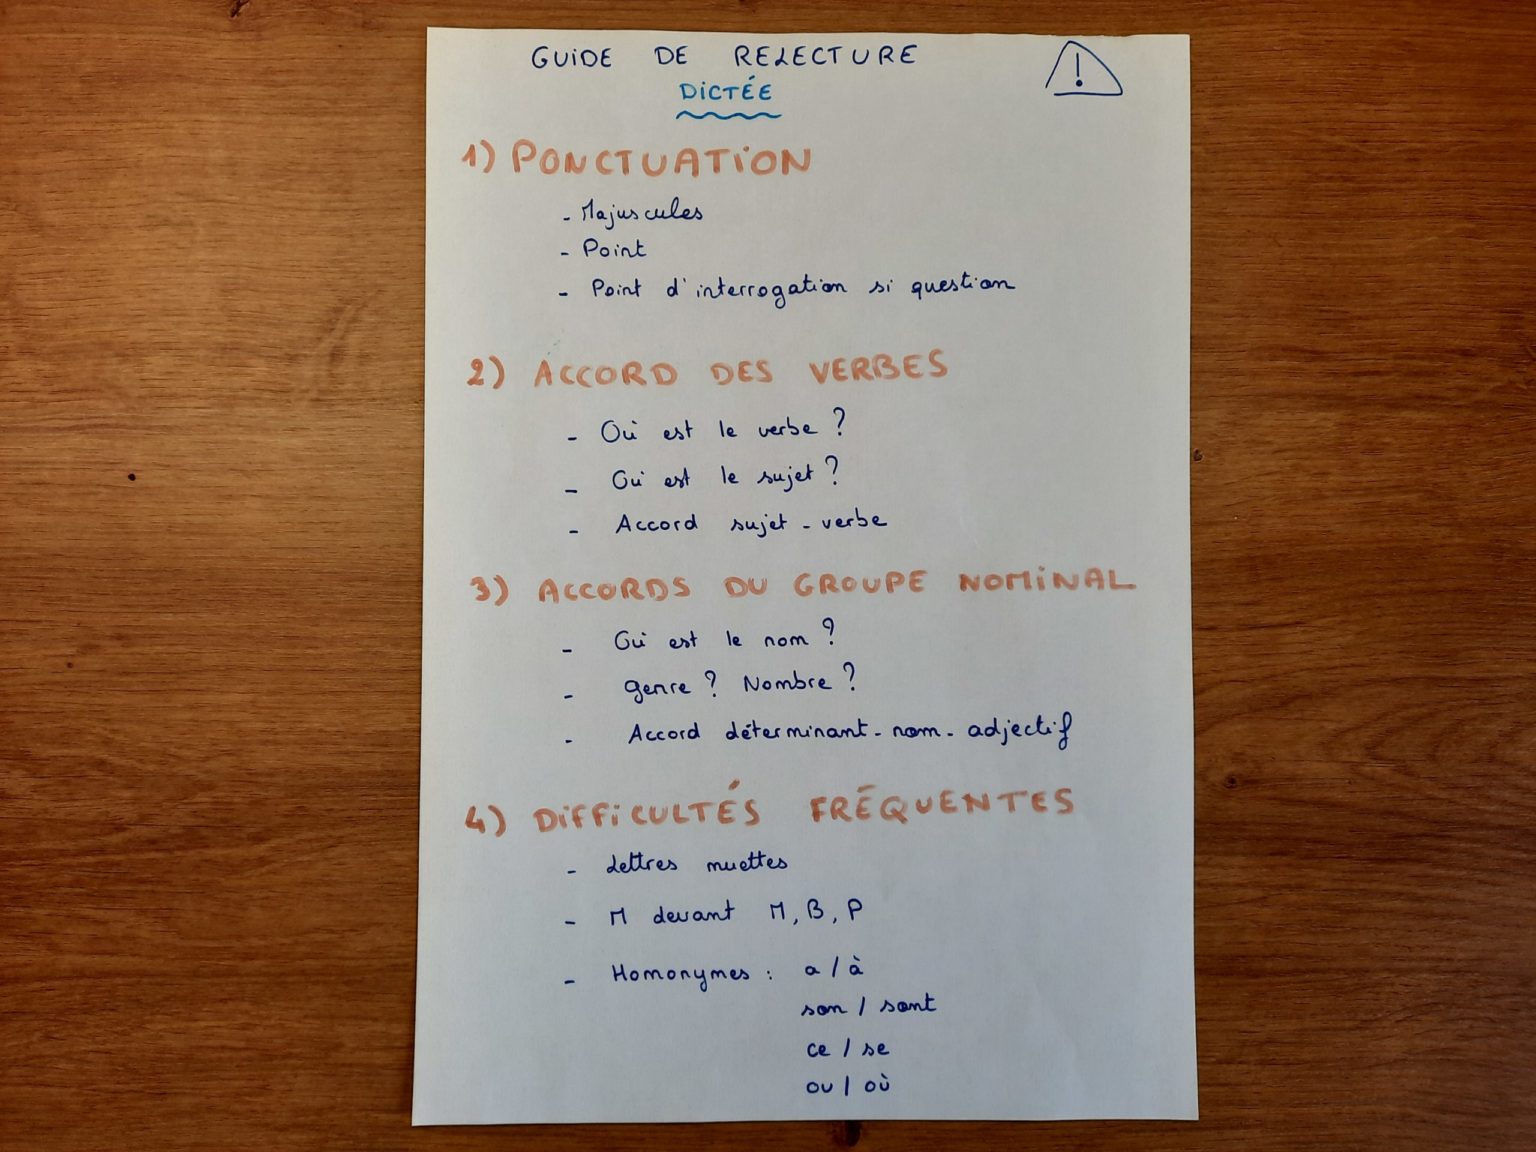 GUIDE DE RELECTURE
!
DICTÉE
1) PONCTUATION
- Majuscules
- Point
- Point d'interrogation si question
2) ACCORD DES VERBES
- Où est le verbe ?
- Où est le sujet ?
- Accord sujet - verbe
3) ACCORDS DU GROUPE NOMINAL
- Où est le nom ?
- Genre ? Nombre ?
- Accord déterminant - nom - adjectif
4) DIFFICULTÉS FRÉQUENTES
- Lettres muettes
- M devant M, B, P
- Homonymes : a / à
son / sont
ce / se
ou / où